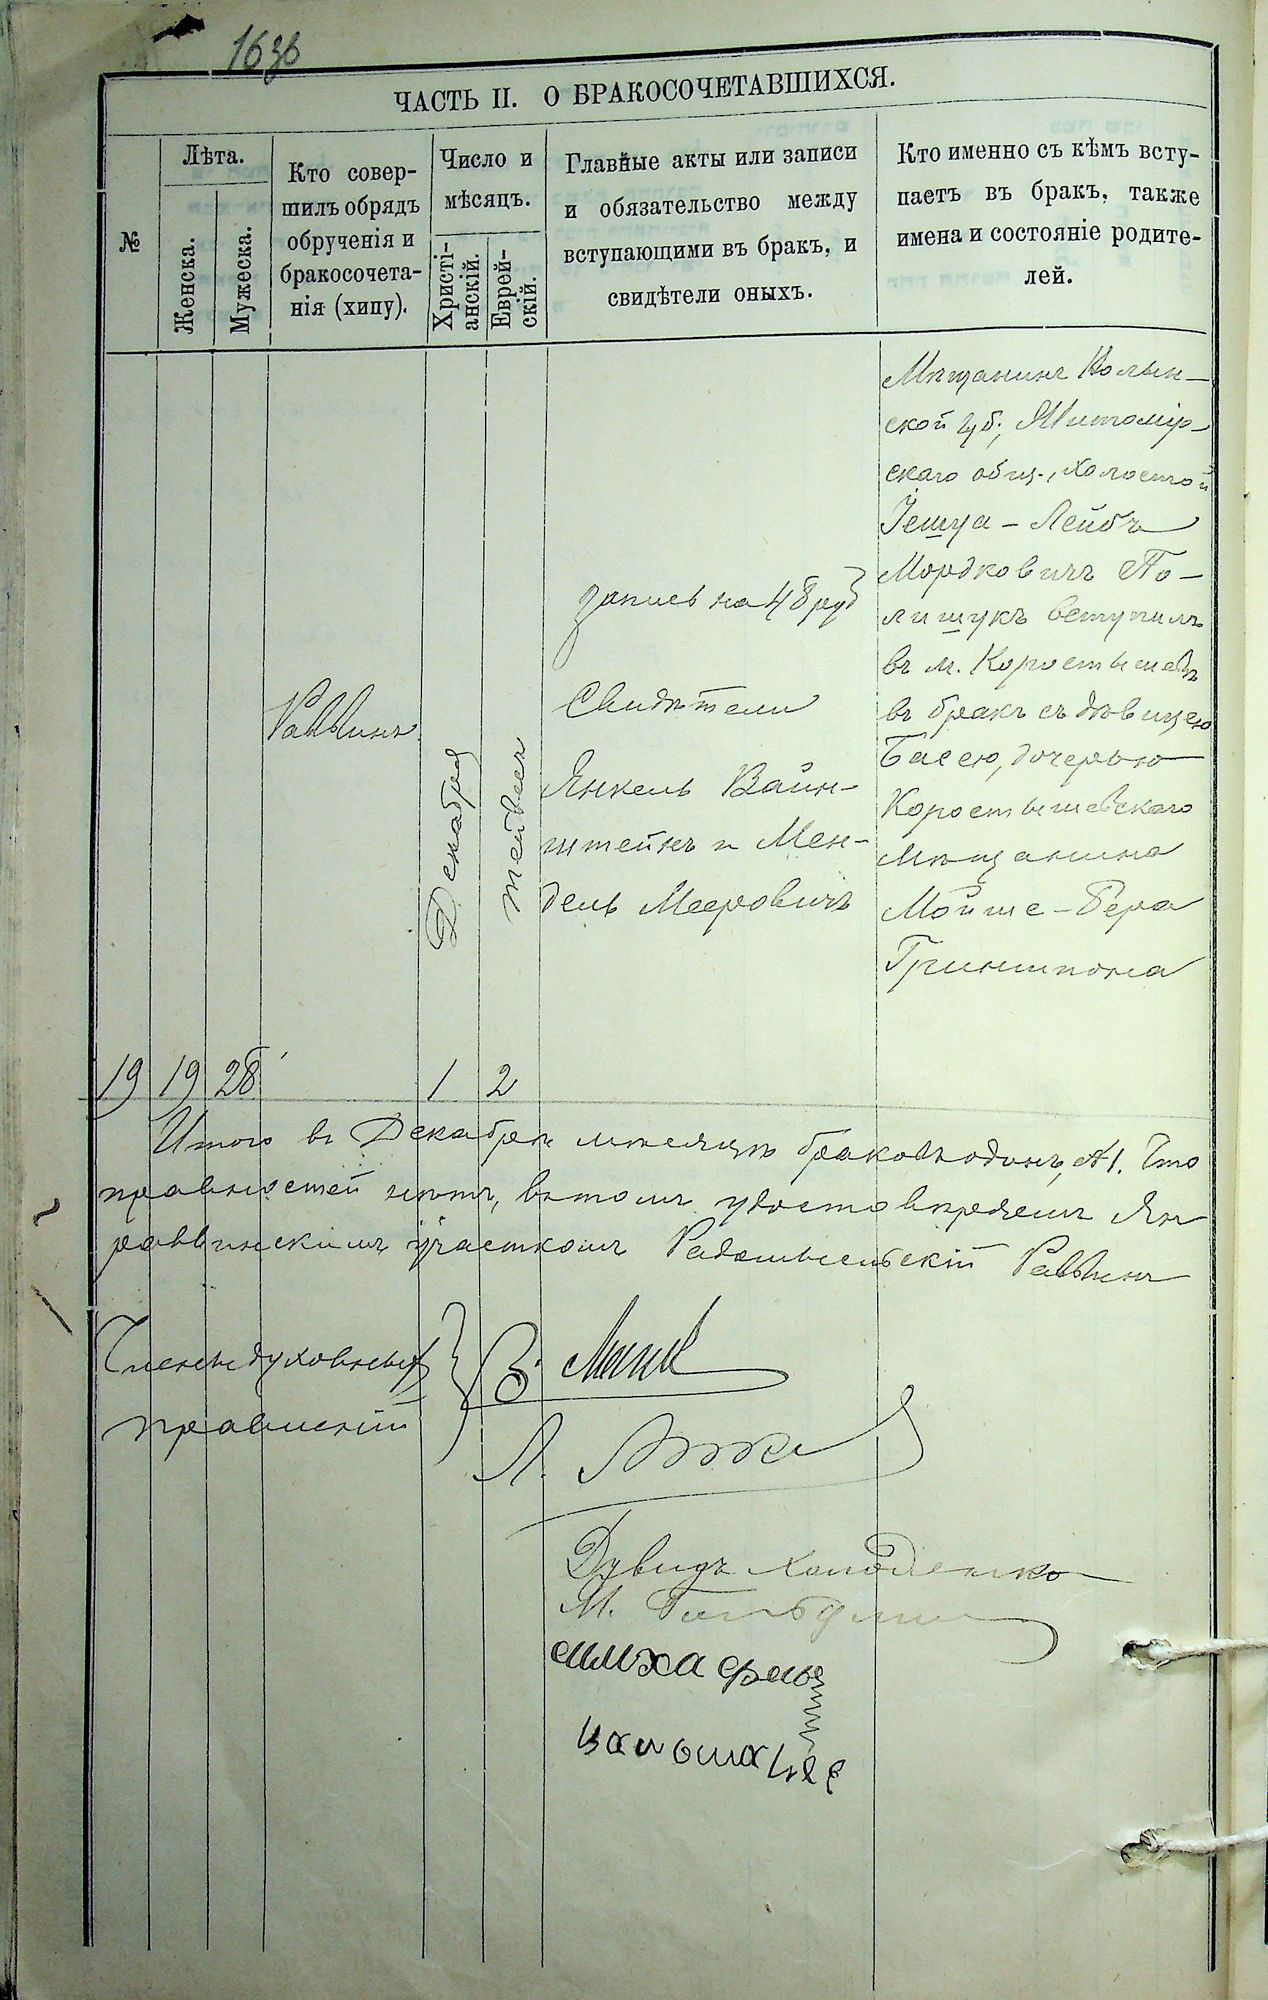 ЧАСТЬ II. О БРАКОСОЧЕТАВШИХСЯ.
№
Лѣта.
Женска.
Мужеска.
Кто совер-
шилъ обрядъ
обрученія и
бракосочета-
нія (хипу).
Число и
мѣсяцъ.
Христі-
анскій.
Еврей-
скій.
Главные акты или записи
и обязательство между
вступающими въ бракъ, и
свидѣтели оныхъ.
Кто именно съ кѣмъ всту-
паетъ въ бракъ, также
имена и состояніе родите-
лей.
19
19
28
Раввинъ
Декабря
1
Тейвея
2
Запись на 48 руб
Свидѣтели
Янкель Вайн-
штейнъ и Мен-
дель Мееровичъ
Мѣщанинъ Волын-
ской губ., Житомір-
скаго общ., холостой
Іешуа-Лейбъ
Мордковичъ По-
лищукъ вступилъ
въ м. Коростышевѣ
въ бракъ съ дѣвицею
Басею, дочерью
Коростышевскаго
мѣщанина
Мойше-Бера
Гриншпона
Итого въ Декабрѣ мѣсяцѣ браковъ одинъ, №1. Что
правностей нѣтъ, въ томъ удостовѣряемъ
раввинскимъ участкомъ Радомысльскій Раввинъ
Члены духовныхъ
правленій
В.
Л.
Дувидъ Холоденко
М.